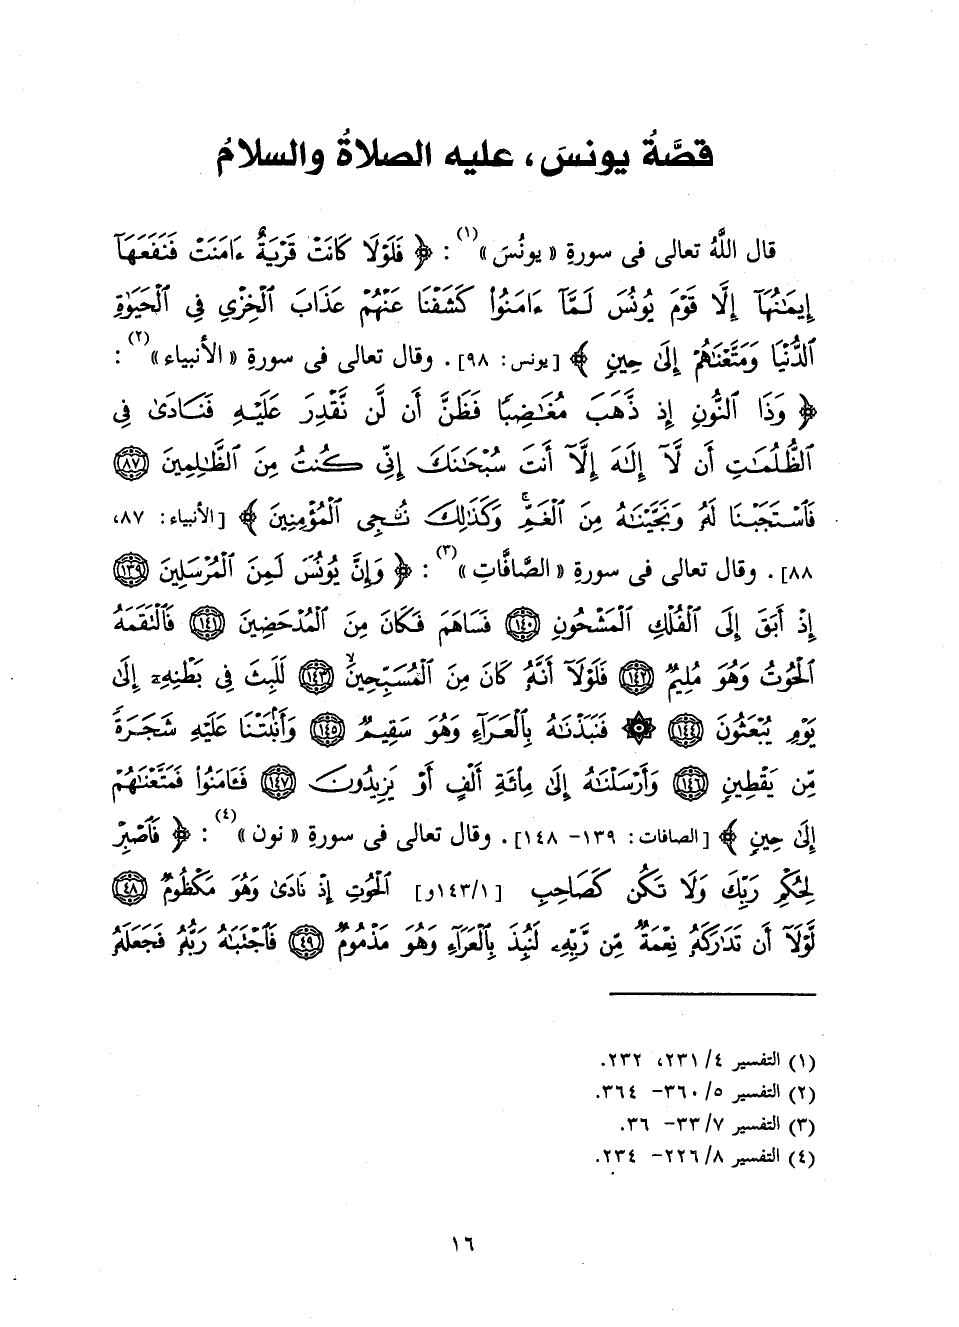 قصَّةُ يونسَ، عليه الصلاةُ والسلامُ
قال اللَّهُ تعالى فى سورةِ «يونُسَ»(١) : ﴿ فَلَوْلَا كَانَتْ قَرْيَةٌ ءَامَنَتْ فَنَفَعَهَآ
إِيمَٰنُهَآ إِلَّا قَوْمَ يُونُسَ لَمَّآ ءَامَنُوا۟ كَشَفْنَا عَنْهُمْ عَذَابَ ٱلْخِزْىِ فِى ٱلْحَيَوٰةِ
ٱلدُّنْيَا وَمَتَّعْنَٰهُمْ إِلَىٰ حِينٍ ﴾ [يونس: ٩٨]. وقال تعالى فى سورةِ «الأنبياء»(٢) :
﴿ وَذَا ٱلنُّونِ إِذ ذَّهَبَ مُغَٰضِبًا فَظَنَّ أَن لَّن نَّقْدِرَ عَلَيْهِ فَنَادَىٰ فِى
ٱلظُّلُمَٰتِ أَن لَّآ إِلَٰهَ إِلَّآ أَنتَ سُبْحَٰنَكَ إِنِّى كُنتُ مِنَ ٱلظَّٰلِمِينَ ٨٧
فَٱسْتَجَبْنَا لَهُۥ وَنَجَّيْنَٰهُ مِنَ ٱلْغَمِّ ۚ وَكَذَٰلِكَ نُۨجِى ٱلْمُؤْمِنِينَ ﴾ [الأنبياء: ٨٧،
٨٨]. وقال تعالى فى سورةِ «الصَّافَّاتِ»(٣) : ﴿ وَإِنَّ يُونُسَ لَمِنَ ٱلْمُرْسَلِينَ ١٣٩
إِذْ أَبَقَ إِلَى ٱلْفُلْكِ ٱلْمَشْحُونِ ١٤٠ فَسَاهَمَ فَكَانَ مِنَ ٱلْمُدْحَضِينَ ١٤١ فَٱلْتَقَمَهُ
ٱلْحُوتُ وَهُوَ مُلِيمٌ ١٤٢ فَلَوْلَآ أَنَّهُۥ كَانَ مِنَ ٱلْمُسَبِّحِينَ ۙ ١٤٣ لَلَبِثَ فِى بَطْنِهِۦٓ إِلَىٰ
يَوْمِ يُبْعَثُونَ ١٤٤ ۞ فَنَبَذْنَٰهُ بِٱلْعَرَآءِ وَهُوَ سَقِيمٌ ١٤٥ وَأَنۢبَتْنَا عَلَيْهِ شَجَرَةً
مِّن يَقْطِينٍ ١٤٦ وَأَرْسَلْنَٰهُ إِلَىٰ مِا۟ئَةِ أَلْفٍ أَوْ يَزِيدُونَ ١٤٧ فَـَٔامَنُوا۟ فَمَتَّعْنَٰهُمْ
إِلَىٰ حِينٍ ﴾ [الصافات: ١٣٩- ١٤٨]. وقال تعالى فى سورةِ «نون»(٤) : ﴿ فَٱصْبِرْ
لِحُكْمِ رَبِّكَ وَلَا تَكُن كَصَاحِبِ [١/١٤٣و] ٱلْحُوتِ إِذْ نَادَىٰ وَهُوَ مَكْظُومٌ ٤٨
لَّوْلَآ أَن تَدَٰرَكَهُۥ نِعْمَةٌ مِّن رَّبِّهِۦ لَنُبِذَ بِٱلْعَرَآءِ وَهُوَ مَذْمُومٌ ٤٩ فَٱجْتَبَٰهُ رَبُّهُۥ فَجَعَلَهُۥ
(١) التفسير ٤/ ٢٣١، ٢٣٢.
(٢) التفسير ٥/ ٣٦٠- ٣٦٤.
(٣) التفسير ٧/ ٣٣- ٣٦.
(٤) التفسير ٨/ ٢٢٦- ٢٣٤.
١٦